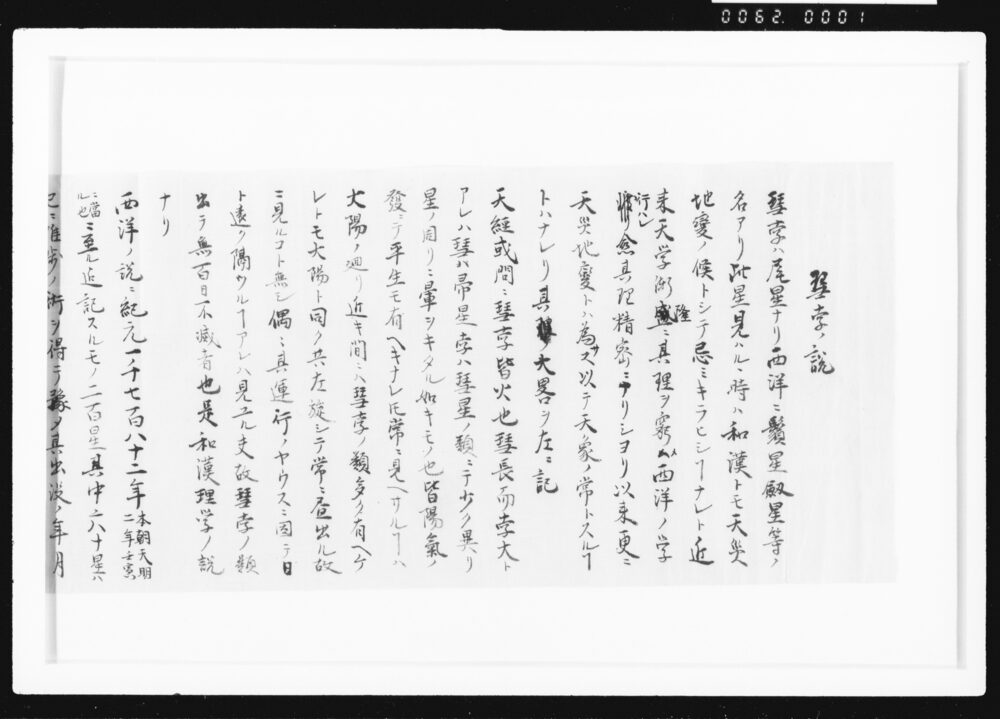 0062.0001
彗孛ノ説
彗孛ハ尾星ナリ西洋ニ鬚星劔星等ノ
名アリ此星見ハルヽ時ハ和漢トモ天災
地変ノ候トシテ忌ミキラヒシヿナレト近
来天学術隆ニ其理ヲ窮メ西洋ノ学
行ハレ愈其理精密ニナリシヨリ以来更ニ
天災地変トハ為サス以テ天象ノ常トスルヿ
トハナレリ其大畧ヲ左ニ記
天経或問ニ彗孛皆火也彗長而孛大ト
アレハ彗ハ帚星孛ハ彗星ノ類ニテ少ク異リ
星ノ周リニ暈ヲキタル如キモノ也皆陽氣ノ
發ニテ平生モ有ヘキナレ𪜈常ニ見ヘサルヿハ
大陽ノ廻リ近キ間ニハ彗孛ノ類多ク有ヘケ
レトモ大陽ト同ク共左旋シテ常ニ昼出ル故
ニ見ルコト無シ偶ニ其運行ノヤウスニ因テ日
ト遠ク隔ヿアレハ見ユル丈故彗孛ノ類
出テ無百日不滅者也是和漢理学ノ説
ナリ
西洋ノ説ニ紀元一千七百八十二年本朝天明二年壬寅
ニ當ル也ニ至ル迄記スルモノ二百星其中六十星ハ
已ニ推歩ノ術ヲ得テ豫メ其出没ノ年月